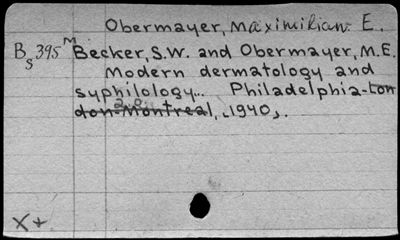 Obermayer, Maximilian E.
BS395 M Becker, S.W. and Obermayer, M.E.
Modern dermatology and
syphilology... Philadelphia-Lon
don-Montreal, 1940.
X+